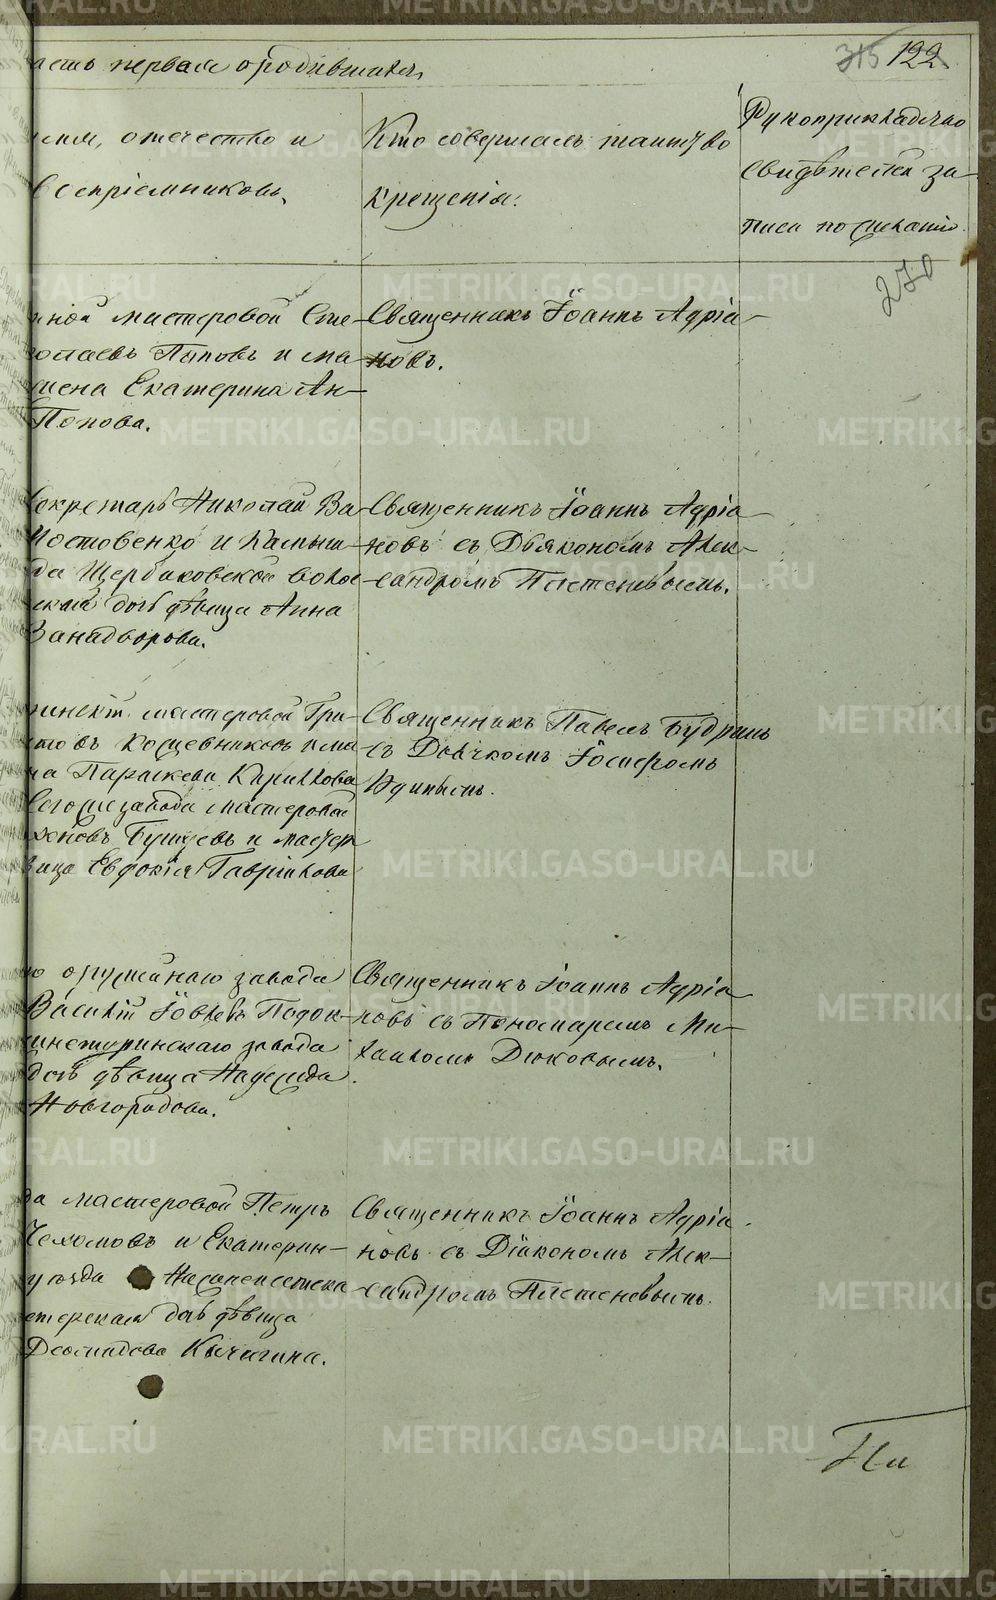 315 122.
асть первая о родившихся,
имя, отечество и
воспріемниковъ.
Кто совершалъ таинство
крещенія.
Рукоприкладство
свидѣтелей за-
писи по желанію.
270
мастеровой Сте-
колаевъ Поповъ и ма-
жена Екатерина Ан-
Попова.
Священникъ Іоаннъ Адріа-
новъ.
Секретарь Николай Ва-
Мостовенко и Камыш-
да Щербаковской воло-
ская дочь дѣвица Анна
Занадворова.
Священникъ Іоаннъ Адріа-
новъ съ Дьякономъ Алек-
сандромъ Плетеневымъ.
мастеровой Гри-
Косцевниковъ и ма-
на Параскева Кирилова
Сего же завода мастеровой
Бушуевъ и мастер
вица Евдокія Гаврилова
Священникъ Павелъ Будринъ
съ Дьячкомъ
оружейнаго завода
Василій Іовлевъ Подок-
катеринскаго завода
дочь дѣвица Надежда
Новгородова.
Священникъ Іоаннъ Адріа-
новъ съ Пономаремъ Ми-
хаиломъ Дюковымъ.
да мастеровой Петръ
Чехомовъ и Екатерин-
уѣзда
дочь дѣвица
Деомидова Кичигина.
Священникъ Іоаннъ Адріа-
новъ съ Діакономъ Алек-
сандромъ Плетеневымъ.
METRIKI.GASO-URAL.RU